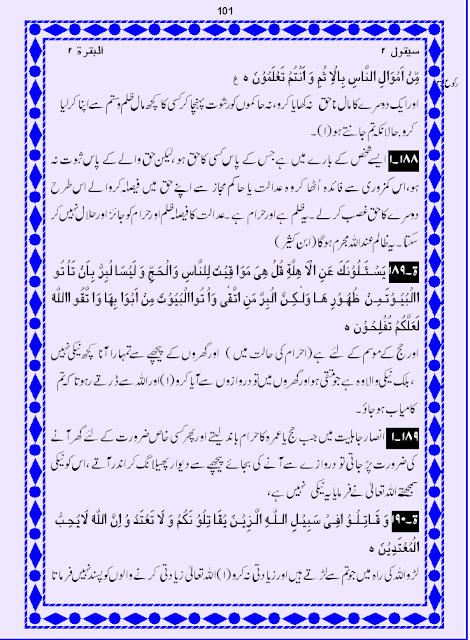 101
سیقول ۲
البقرة ۲
مِّنْ اَمْوَالِ النَّاسِ بِالْاِ ثْمِ وَ اَنْتُمْ تَعْلَمُوْنَ ہ ع
اور ایک دوسرے کا مال ناحق نہ کھایا کرو، نہ حاکموں کو رشوت پہنچا کر کسی کا کچھ مال ظلم وستم سے اپنا کر لیا
کرو، حالانکہ تم جانتے ہو(۱)۔
۱۸۸۔۱ ایسے شخص کے بارے میں ہے جس کے پاس کسی کا حق ہو، لیکن حق والے کے پاس ثبوت نہ
ہو، اس کمزوری سے فائدہ اُٹھا کر وہ عدالت یا حاکم مجاز سے اپنے حق میں فیصلہ کروالے اس طرح
دوسرے کا حق غصب کر لے۔ یہ ظلم ہے اور حرام ہے۔ عدالت کا فیصلہ ظلم اور حرام کو جائز اور حلال نہیں کر
سکتا۔ یہ ظالم عنداللہ مجرم ہوگا (ابن کثیر)
ۃ۔۱۸۹ یَسْئَلُوْنَكَ عَنِ الْاَ هِلَّةِ قُلْ هِیَ مَوَا قِیْتُ لِلنَّاسِ وَالْحَجِّ وَ لَیْسَالْبِرُّ بِاَنْ تَاْ تُو
االْبُیُوْتَمِنْ ظُهُوْرِ هَا وَلٰـكِنَّ الْبِرَّ مَنِ اتَّقٰى وَاْ تُواالْبُیُوْتَ مِنْ اَبْوَا بِهَا وَا تَّقُو االلّٰهَ
لَعَلَّكُمْ تُفْلِحُوْنَ ہ
اور حج کے موسم کے لئے ہے (احرام کی حالت میں) اور گھروں کے پیچھے سے تمہارا آنا کچھ نیکی نہیں
، بلکہ نیکی والا وہ ہے جو متقی ہو اور گھروں میں تو دروازوں سے آیا کرو(۱) اور اللہ سے ڈرتے رہو تا کہ تم
کامیاب ہو جاؤ۔
۱۸۹۔۱ انصار جاہلیت میں جب حج یا عمرہ کا احرام باندھ لیتے اور پھر کسی خاص ضرورت کے لئے گھر آنے
کی ضرورت پڑ جاتی تو دروازے سے آنے کی بجائے پیچھے سے دیوار پھیلانگ کر اندر آتے، اس کو نیکی
سمجھتے اللہ تعالیٰ نے فرمایا یہ نیکی نہیں ہے،
ۃ۔۱۹۰ وَ قَاتِلُوْ افِیْ سَبِیْلِ اللّٰهِ الَّزِیْنَ یُقَاتِلُوْ نَكُمْ وَ لَا تَعْتَدُ وْ اِنَّ اللّٰهَ لَا یُحِبُّ
الْمُعْتَدِیْنَ ہ
لڑو اللہ کی راہ میں جو تم سے لڑتے ہیں اور زیادتی نہ کرو(۱) اللہ تعالیٰ زیادتی کرنے والوں کو پسند نہیں فرماتا